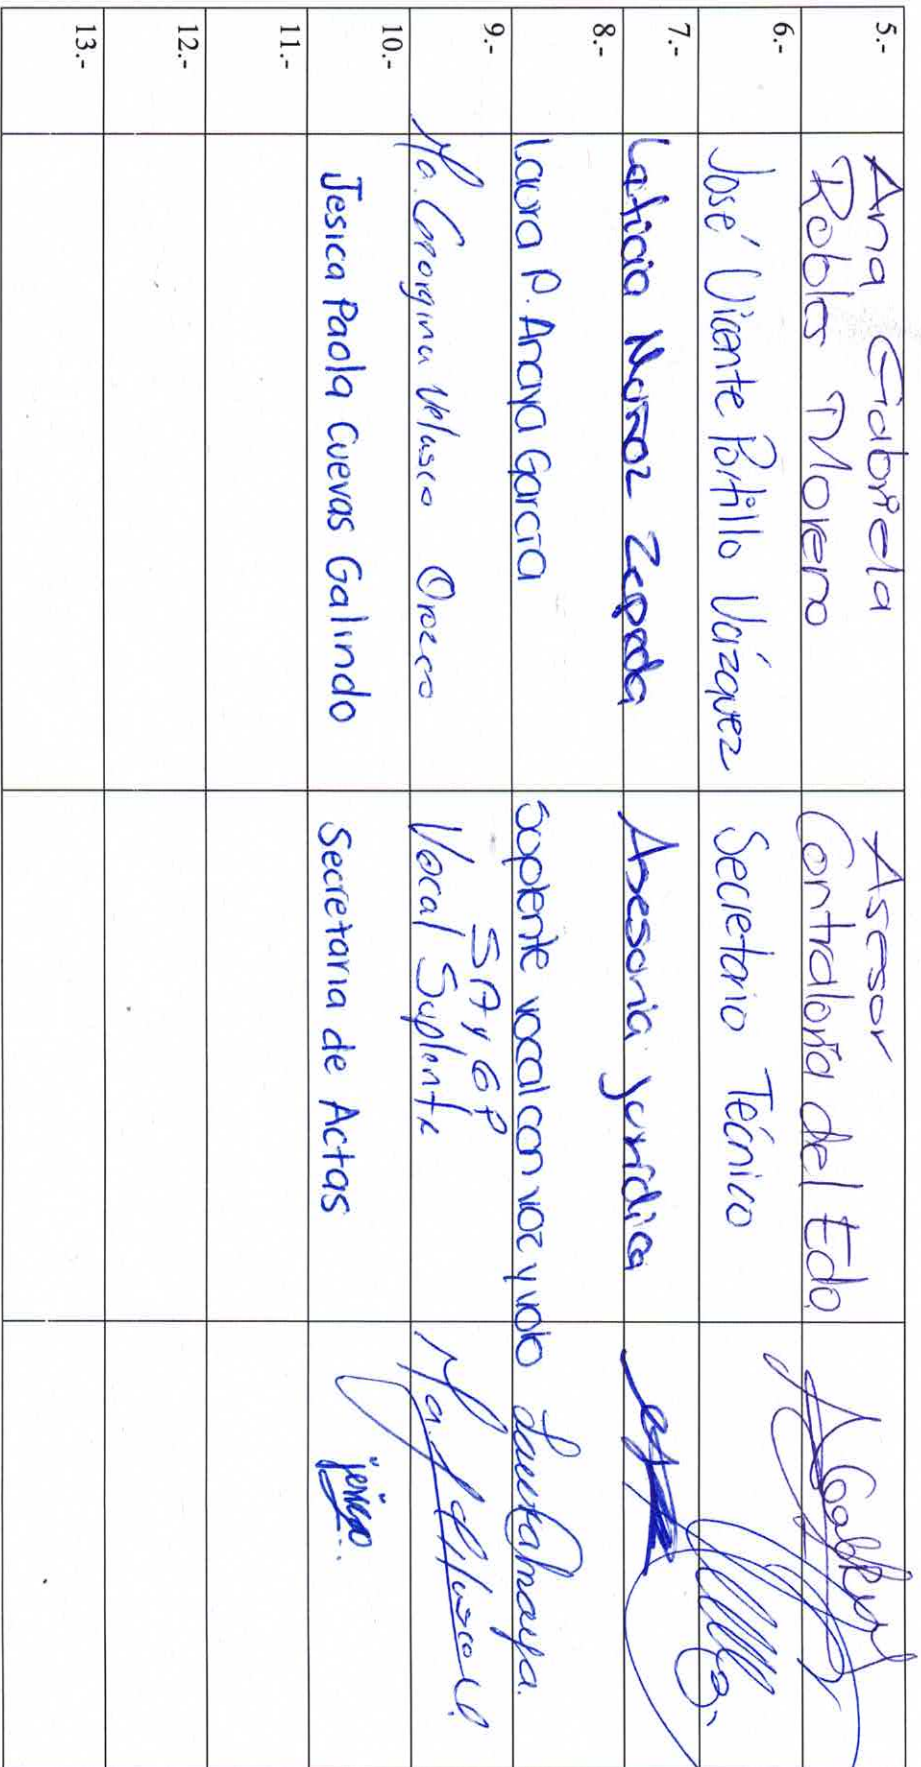 5.-
Ana Gabriela
Robles Moreno
Asesor
Contraloría del Edo.
6.-
José Vicente Portillo Vázquez
Secretario Técnico
7.-
Leticia Muñoz Zepeda
Asesoria jurídica
8.-
Laura P. Anaya García
Suplente vocal con voz y voto
Laura Anaya.
9.-
Ma. Georgina Velasco Orozco
SA y GP
Vocal Suplente
10.-
Jesica Paola Cuevas Galindo
Secretaria de Actas
jesica
11.-
12.-
13.-